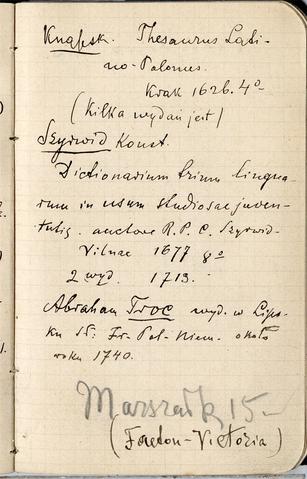 Knapsk. Thesaurus Lati-
no-Polonus.
Krak 1626. 4o
(Kilka wydań jest)
Szyrwid Konst.
Dictionarium trium lingua-
rum in usum studiosae juven-
tutis. auctore R. P. C. Szyrwid-
Vilnae 1677 8o
2 wyd. 1713.
Abraham Troc wyd. w Lips-
ku Fr-Pol-Niem. około
roku 1740.
Marszałk 15-
(Faeton-Victoria)